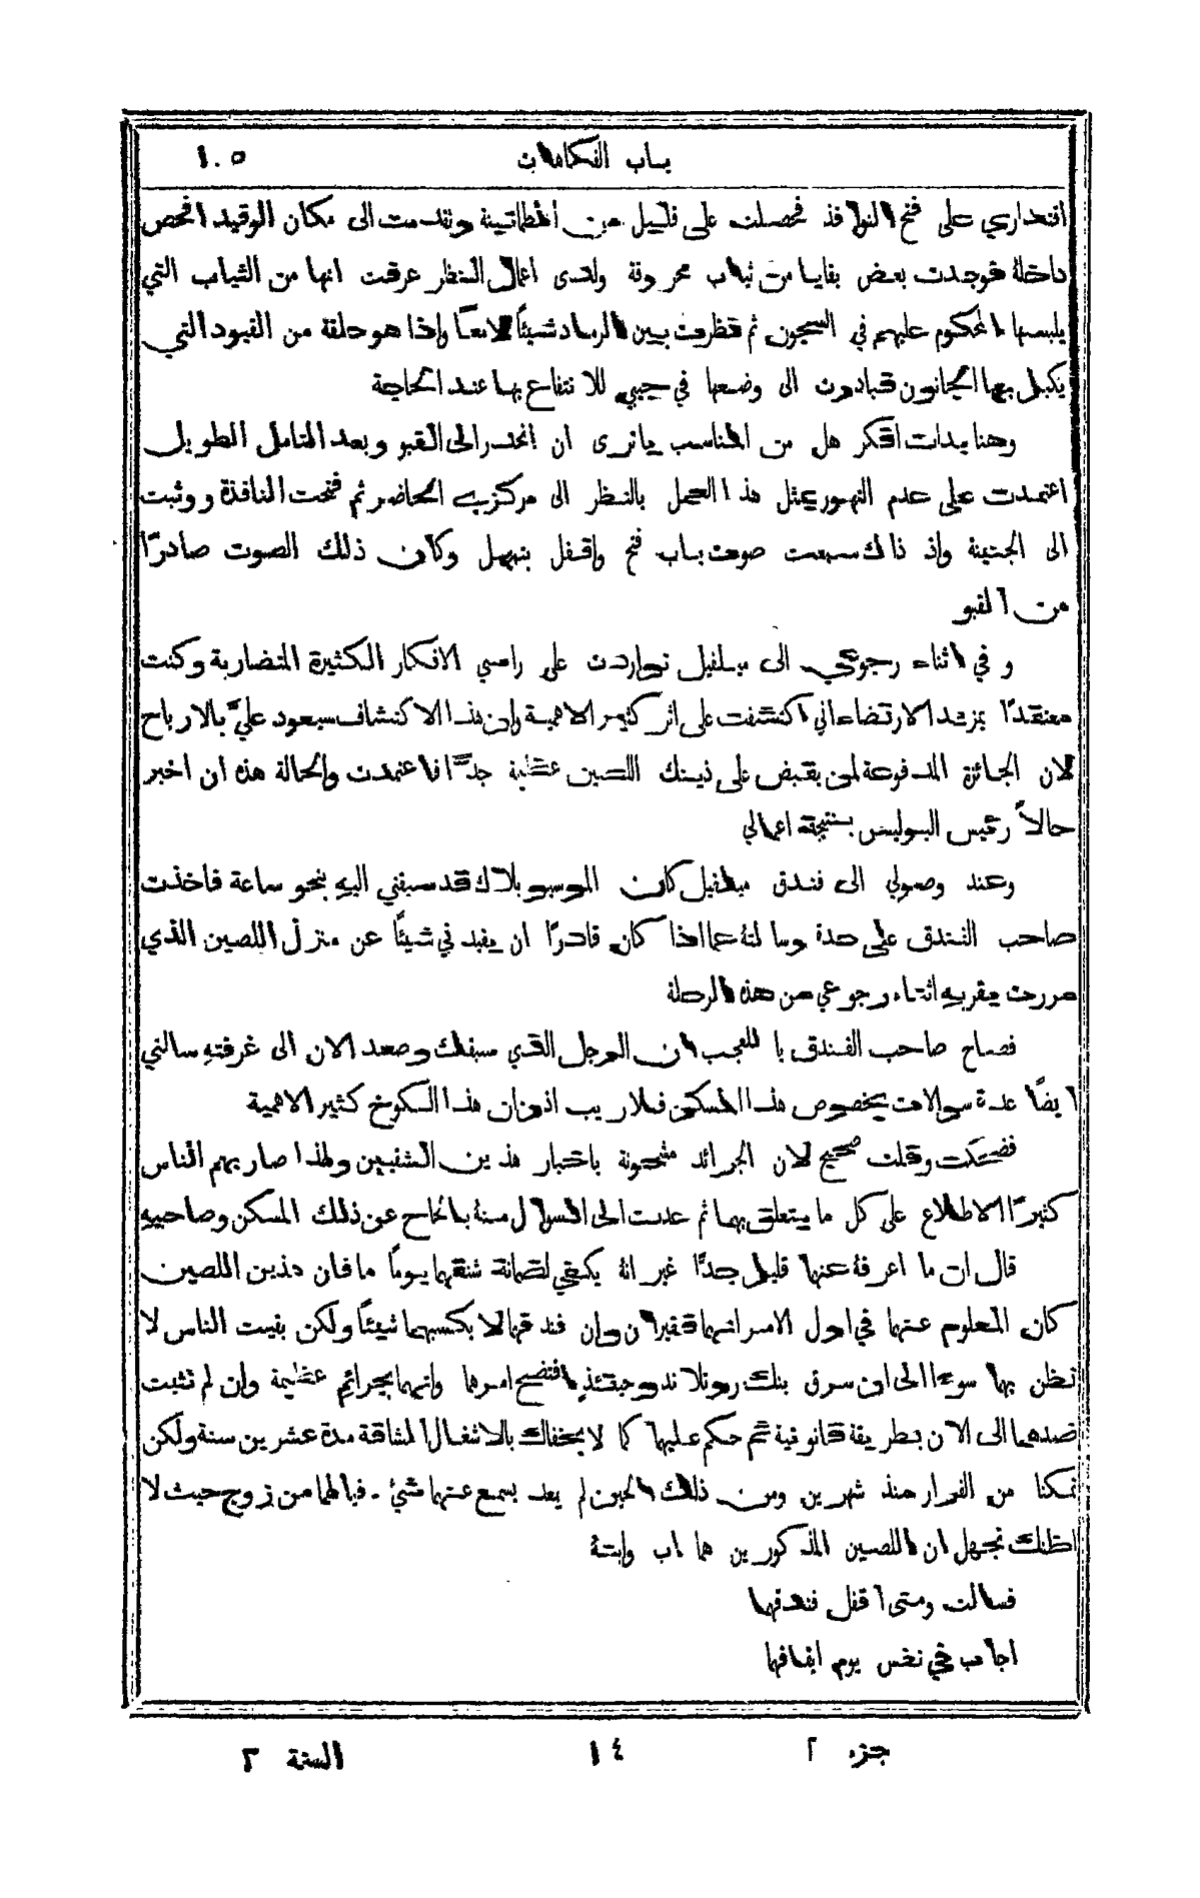 باب الفكاهات ١٠٥
اقتداري على فتح النوافذ فحصلت على قليل من الطمانينة وتقدمت الى مكان الوقيد افحص
داخلهُ فوجدت بعض بقايا من ثياب محروقة ولدى اعمال النظر عرفت انها من الثياب التي
يلبسها المحكوم عليهم في السجون ثم نظرت بين الرماد شيئًا لامعًا واذا هو حلقة من القيود التي
يكبل بها الجانون فبادرت الى وضعها في جيبي للانتفاع بها عند الحاجة
وهنا بدات افتكر هل من المناسب يا ترى ان انحدر الى القبو وبعد التامل الطويل
اعتمدت على عدم التهور بمثل هذا العمل بالنظر الى مركزي الحاضر ثم فتحت النافذة ووثبت
الى الجنينة واذ ذاك سمعت صوت باب فتح واقفل بتمهل وكان ذلك الصوت صادرًا
من القبو
وفي اثناء رجوعي الى ميلفيل تواردت على راسي الافكار الكثيرة المتضاربة وكنت
معتقدًا بمزيد الارتضاء اني اكتشفت على اثر كثير الاهمية وان هذا الاكتشاف سيعود عليَّ بالارباح
لان الجائزة المدفوعة لمن يقبض على ذينك اللصين عظيمة جدًّا فاعتمدت والحالة هذه ان اخبر
حالاً رئيس البوليس بنتيجة اعمالي
وعند وصولي الى فندق ميلفيل كان الموسيو بلاك قد سبقني اليهِ بنحو ساعة فاخذت
صاحب الفندق على حدة وسالتهُ عما اذا كان قادرًا ان يفيدني شيئًا عن منزل اللصين الذي
مررت بقربهِ اثناء رجوعي من هذه الرحلة
فصاح صاحب الفندق يا للعجب ان الرجل الذي سبقك وصعد الان الى غرفتهِ سالني
ايضًا عدة سوالات بخصوص هذا المسكن فلا ريب اذن ان هذا الكوخ كثير الاهمية
فضحكت وقلت صحيح لان الجرائد مشحونة باخبار هذين الشقيين ولهذا صار يهم الناس
كثيرًا الاطلاع على كل ما يتعلق بهما ثم عدت الى السوال منهُ بالحاح عن ذلك المسكن وصاحبيهِ
قال ان ما اعرفهُ عنهما قليل جدًّا غير انهُ يكفي لضمانة شنقهما يومًا ما فان هذين اللصين
كان المعلوم عنهما في اول الامر انهما فقيران وان فندقهما لا يكسبهما شيئًا ولكن بقيت الناس لا
تظن بهما سوءا الى ان سرق بنك روتلاند وحينئذٍ افتضح امرها واتهما بجرائم عظيمة وان لم تثبت
ضدهما الى الان بطريقة قانونية ثم حكم عليهما كما لا يخفاك بالاشغال الشاقة مدة عشرين سنة ولكن
تمكنا من الفرار منذ شهرين ومن ذلك الحين لم يعد يسمع عنهما شيء . فيا لهما من زوج حيث لا
اظنك تجهل ان اللصين المذكورين هما اب وابنهُ
فسالت ومتى اقفل فندقهما
اجاب في نفس يوم ايقافهما
جزء ٢ ١٤ السنة ٢